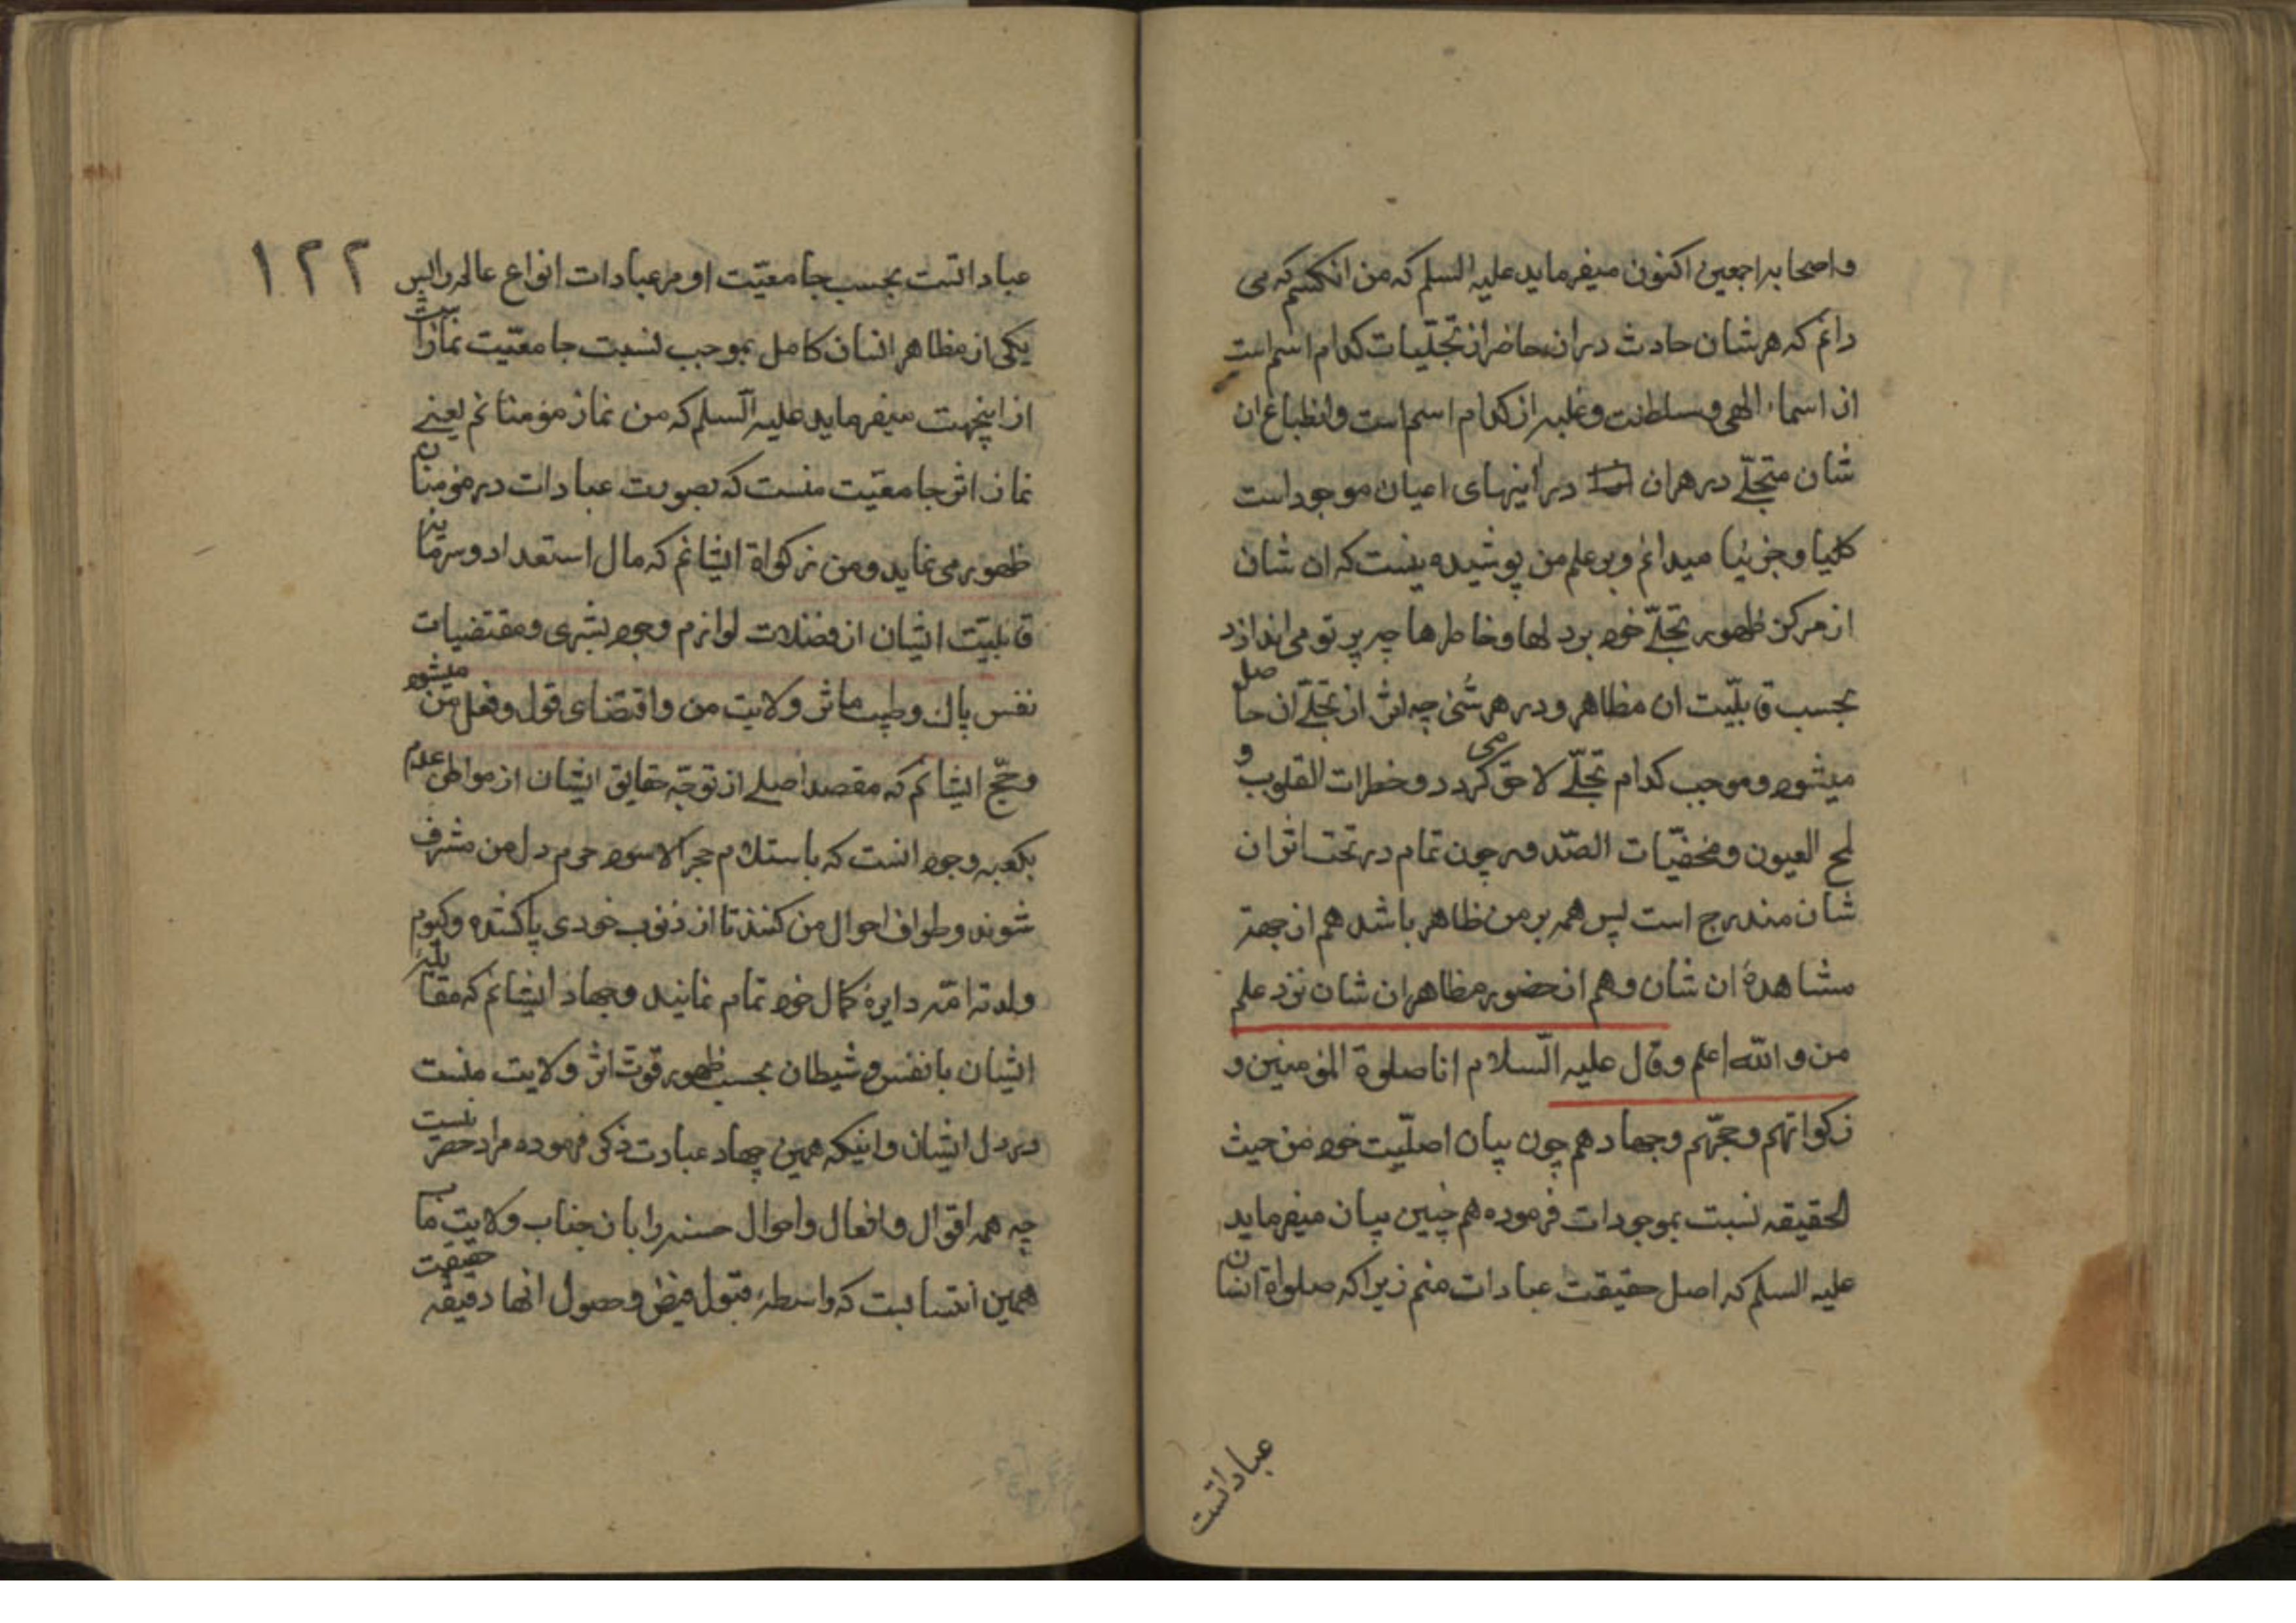 واصحابه اجمعین اکنون میفرماید علیه السلم که من انکسم که می
دانم که هر شان حادث در ان حاضر از تجلّیات کدام اسم است
از اسماء الهی و سلطنت و غلبه از کدام اسم است وانطباع ان
شان متجلّی در هر ان در اینهای اعیان موجود است
کلیا و جزئیا میدانم و بر علم من پوشیده نیست که ان شان
از مرکز ظهور تجلّی خود بر دلها و خاطرها چه پرتو می اندازد
بحسب قابلّیت ان مظاهر و در هر شئی چه اثر از تجلّی ان حاصل
میشود و موجب کدام تجلّی لاحق می کردد و خطرات القلوب و
لمح العیون و مخفیّات الصّدور چون تمام در تحت اثر ان
شان مندرج است پس همه بر من ظاهر باشد هم از جهة
مشاهدهٔ ان شان و هم از حضور مظاهر ان شان نزد علم
من و الله اعلم وقال علیه السّلام انا صلوة المؤمنین و
زکواتهم و حجّهم و جهادهم چون بیان اصلّیت خود من حیث
الحقیقه نسبت بموجودات فرموده هم چنین بیان میفرماید
علیه السلم که اصل حقیقت عبادات منم زیرا که صلواة انسان
عباداتست
۱۲۲
عباداتست بحسب جامعیّت او مر عبادات انواع عالم را پس
یکی از مظاهر انسان کامل بموجب نسبت جامعیّت نمازاست
از اینجهت میفرماید علیه السّلم که من نماز مؤمنانم یعنے
نماز اثر جامعیّت منست که بصورت عبادات در مؤمنان
ظهور می نماید و من زکواة ایشانم که مال استعداد و سرمایه
قابلیّت ایشان از فضلات لوازم وجود بشری و مقتضیات
نفس پاك و طیب مآثر ولایت من و اقتضای قول و فعل من میشود
و حجّ ایشانم که مقصد اصلے از توجّه حقایق ایشان از مواطن عدم
بکعبه وجود انست که باستلام حجر الاسود حرم دل من مشرف
شوند و طواف احوال من کنند تا از ذنوب خودی پاك شده و کیوم
ولدته امّه دایرهٔ کمال خود تمام نمایند و جهاد ایشانم که مقابله
ایشان با نفس و شیطان بحسب ظهور قوت اثر ولایت منست
در دل ایشان و اینکه همین چهار عبادت ذکر فرموده مراد حصر نیست
چه همه اقوال و افعال و احوال حسنه را بان جناب ولایت ماب
همین انتسابست که واسطهٔ قبول فیض و حصول انها دقیقه حقیقت